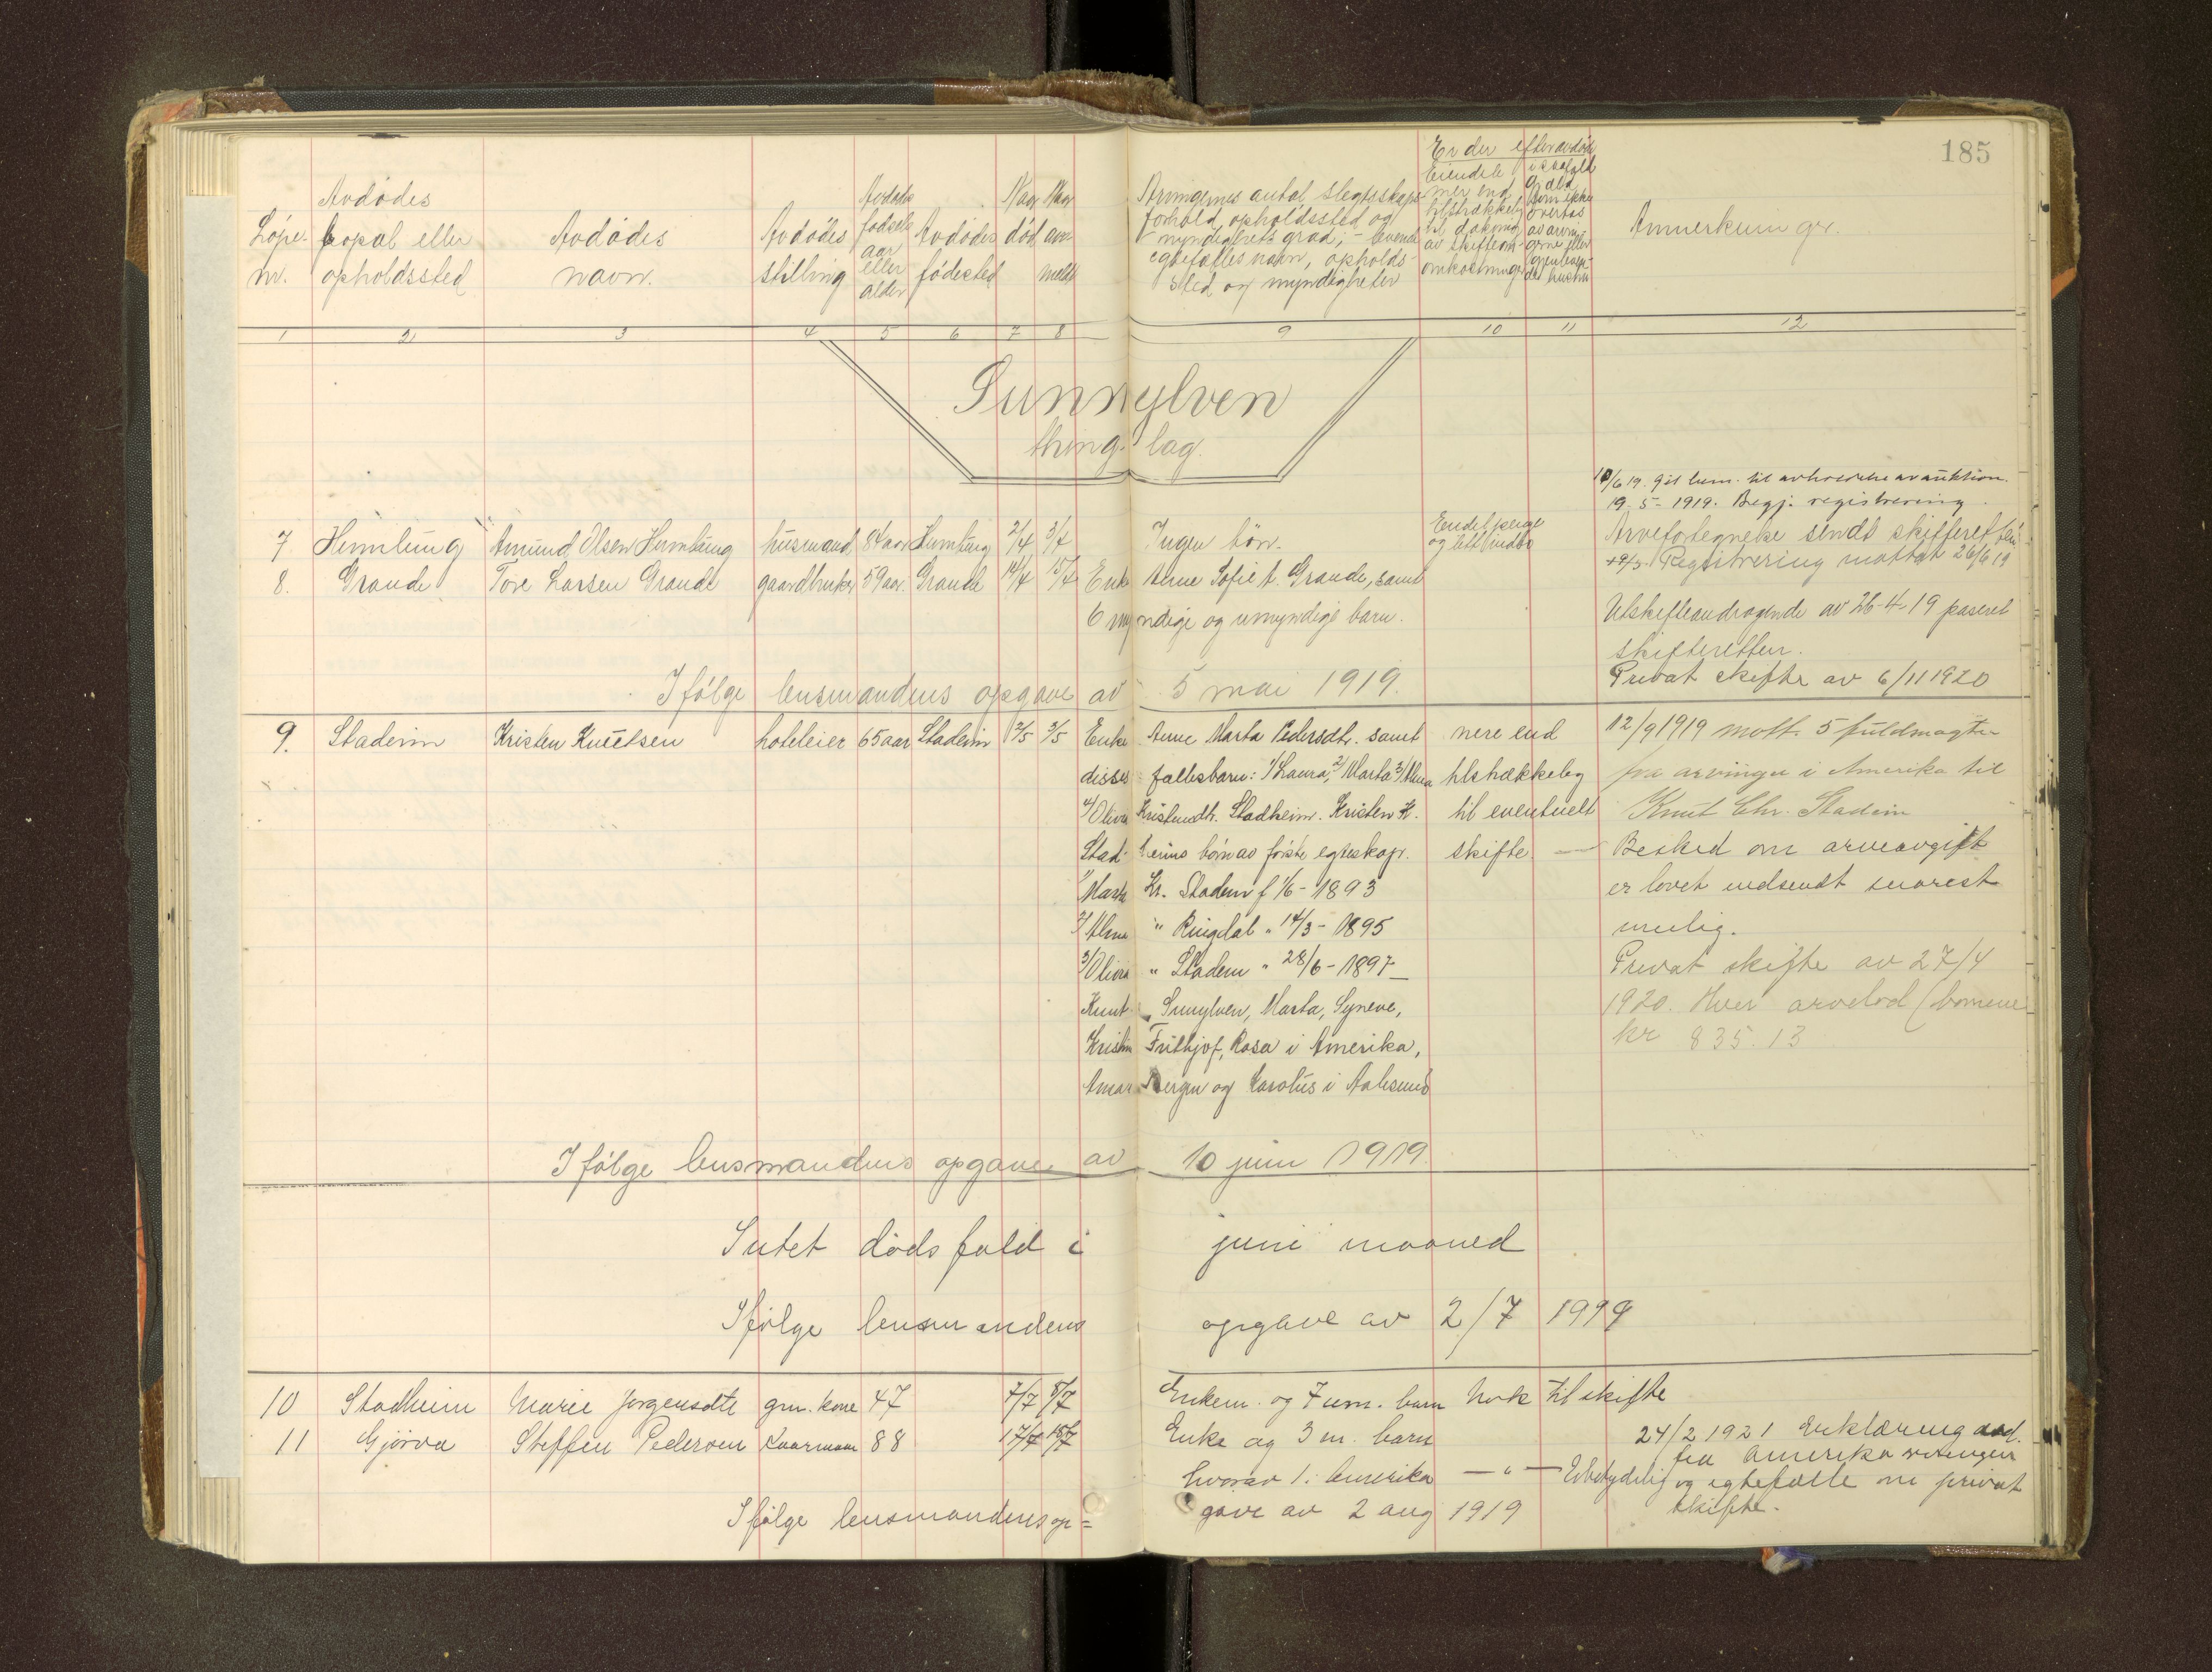 185
Avdødes
Løpe- bopæl eller
nr. opholdssted
Avdødes
navn.
Avdødes
stilling
Avdødes
fødsels
aar
eller
alder
Avdødes
fødested
Naar
død
Naar
an-
meldt
Arvingernes antal slegtsskaps-
forhold, opholdssted og
myndighets grad; - levende
egtefælles navn, opholds-
sted og myndigheter
Er der efter avdøde
eiendele
mer end
tilstrækkelig
til dækning
av skifteom-
omkostninger
i
gjæld
som ikke
overtas
av arvin-
gerne eller
gjenlevende
hustru
Anmerkninger.
1 2 3 4 5 6 7 8 9 10 11 12
Sunnylven
thing-lag.
10/6 19. git bem. til avholdelse av auktion.
19. 5- 1919. Begj. registrering.
7 Humlung Amund Olsen Humlung husmand 84 aar Humlung 2/4 3/4 Ingen børn. Endel penge og litt indbo Arvefortegnelse sendt skifteretten
Registrering mottat 26/6 19
8. Grande Tore Larsen Grande gaardbruker 59 aar. Grande 14/4 15/4 Enke Anne Sofie t. Grande, samt
6 myndige og umyndige barn.
Utskifteandragende av 26-4-19 paseret
skifteretten.
Privat skifte av 6/11 1920
Ifølge lensmandens opgave av 5 mai 1919.
9. Stadeim Kristen Knutsen hoteleier 65 aar Stadeim 2/5 3/5 Enke Anne Marta Pedersdtr. samt mere end 12/9 1919 mott. 5 fuldmagter
disses fællesbarn: 1/ Laura, 2/ Marta 3/ Alma tilstrækkeleg fra arvinger i Amerika til
4/ Olivia Kristensdtr. Stadheim. Kristen K. til eventuelt Knut Chr. Stadeim
Stad- heims børn av første egteskap. skifte — Besked om arveavgift
1/ Marta Kr. Stadem f 1/6 - 1893 er lovet indsendt snarest
2/ Alma " Ringdal " 14/3 - 1895 mulig.
3/ Olivia " Stadem " 28/6 - 1897 Privat skifte av 27/4
Knut Sunylven, Marta, Syneve, 1920. Hver arvelod (bornene
Kristen Frithjof, Rosa i Amerika, kr 835.13
Amar Bergen og Karolus i Aalesund
Ifølge lensmandens opgave av 10 juni 1919.
Intet dødsfald i juni maaned
Ifølge lensmandens opgave av 2/7 1919
10 Stadheim Marie Jørgensdtr grn. kone 47 7/7 8/7 Enkem. og 7 um. barn Nok til skifte
11 Gjørva Steffen Pedersen Kaarmann 88 17/7 18/7 Enke og 3 m. barn 24/2 1921 Erklæring
hvorav 1 i Amerika — " — Ubetydelig fra Amerika arvingen
og egtefælle om privat
skifte.
Ifølge lensmandens op=gave av 2 aug 1919